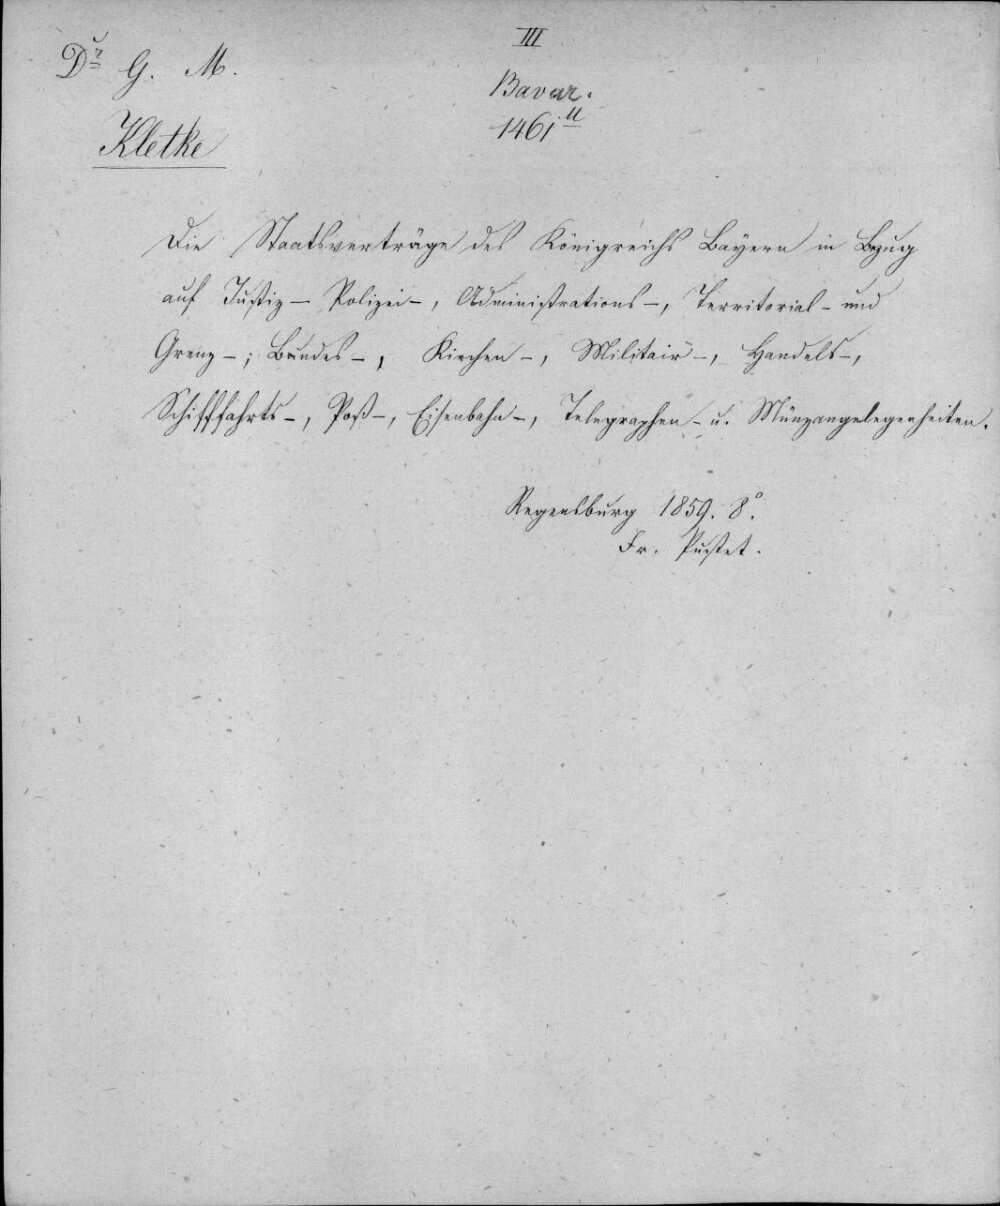 III
Dr G. M.
Bavar.
1461 u
Kletke
Die Staatsverträge des Königreichs Bayern in Bezug
auf Justiz- Polizei-, Administrations-, Territorial- und
Grenz-; Bundes-, Kirchen-, Militair-, Handels-,
Schifffahrts-, Post-, Eisenbahn-, Telegraphen- u. Münzangelegenheiten.
Regensburg 1859. 8°.
Fr. Pustet.